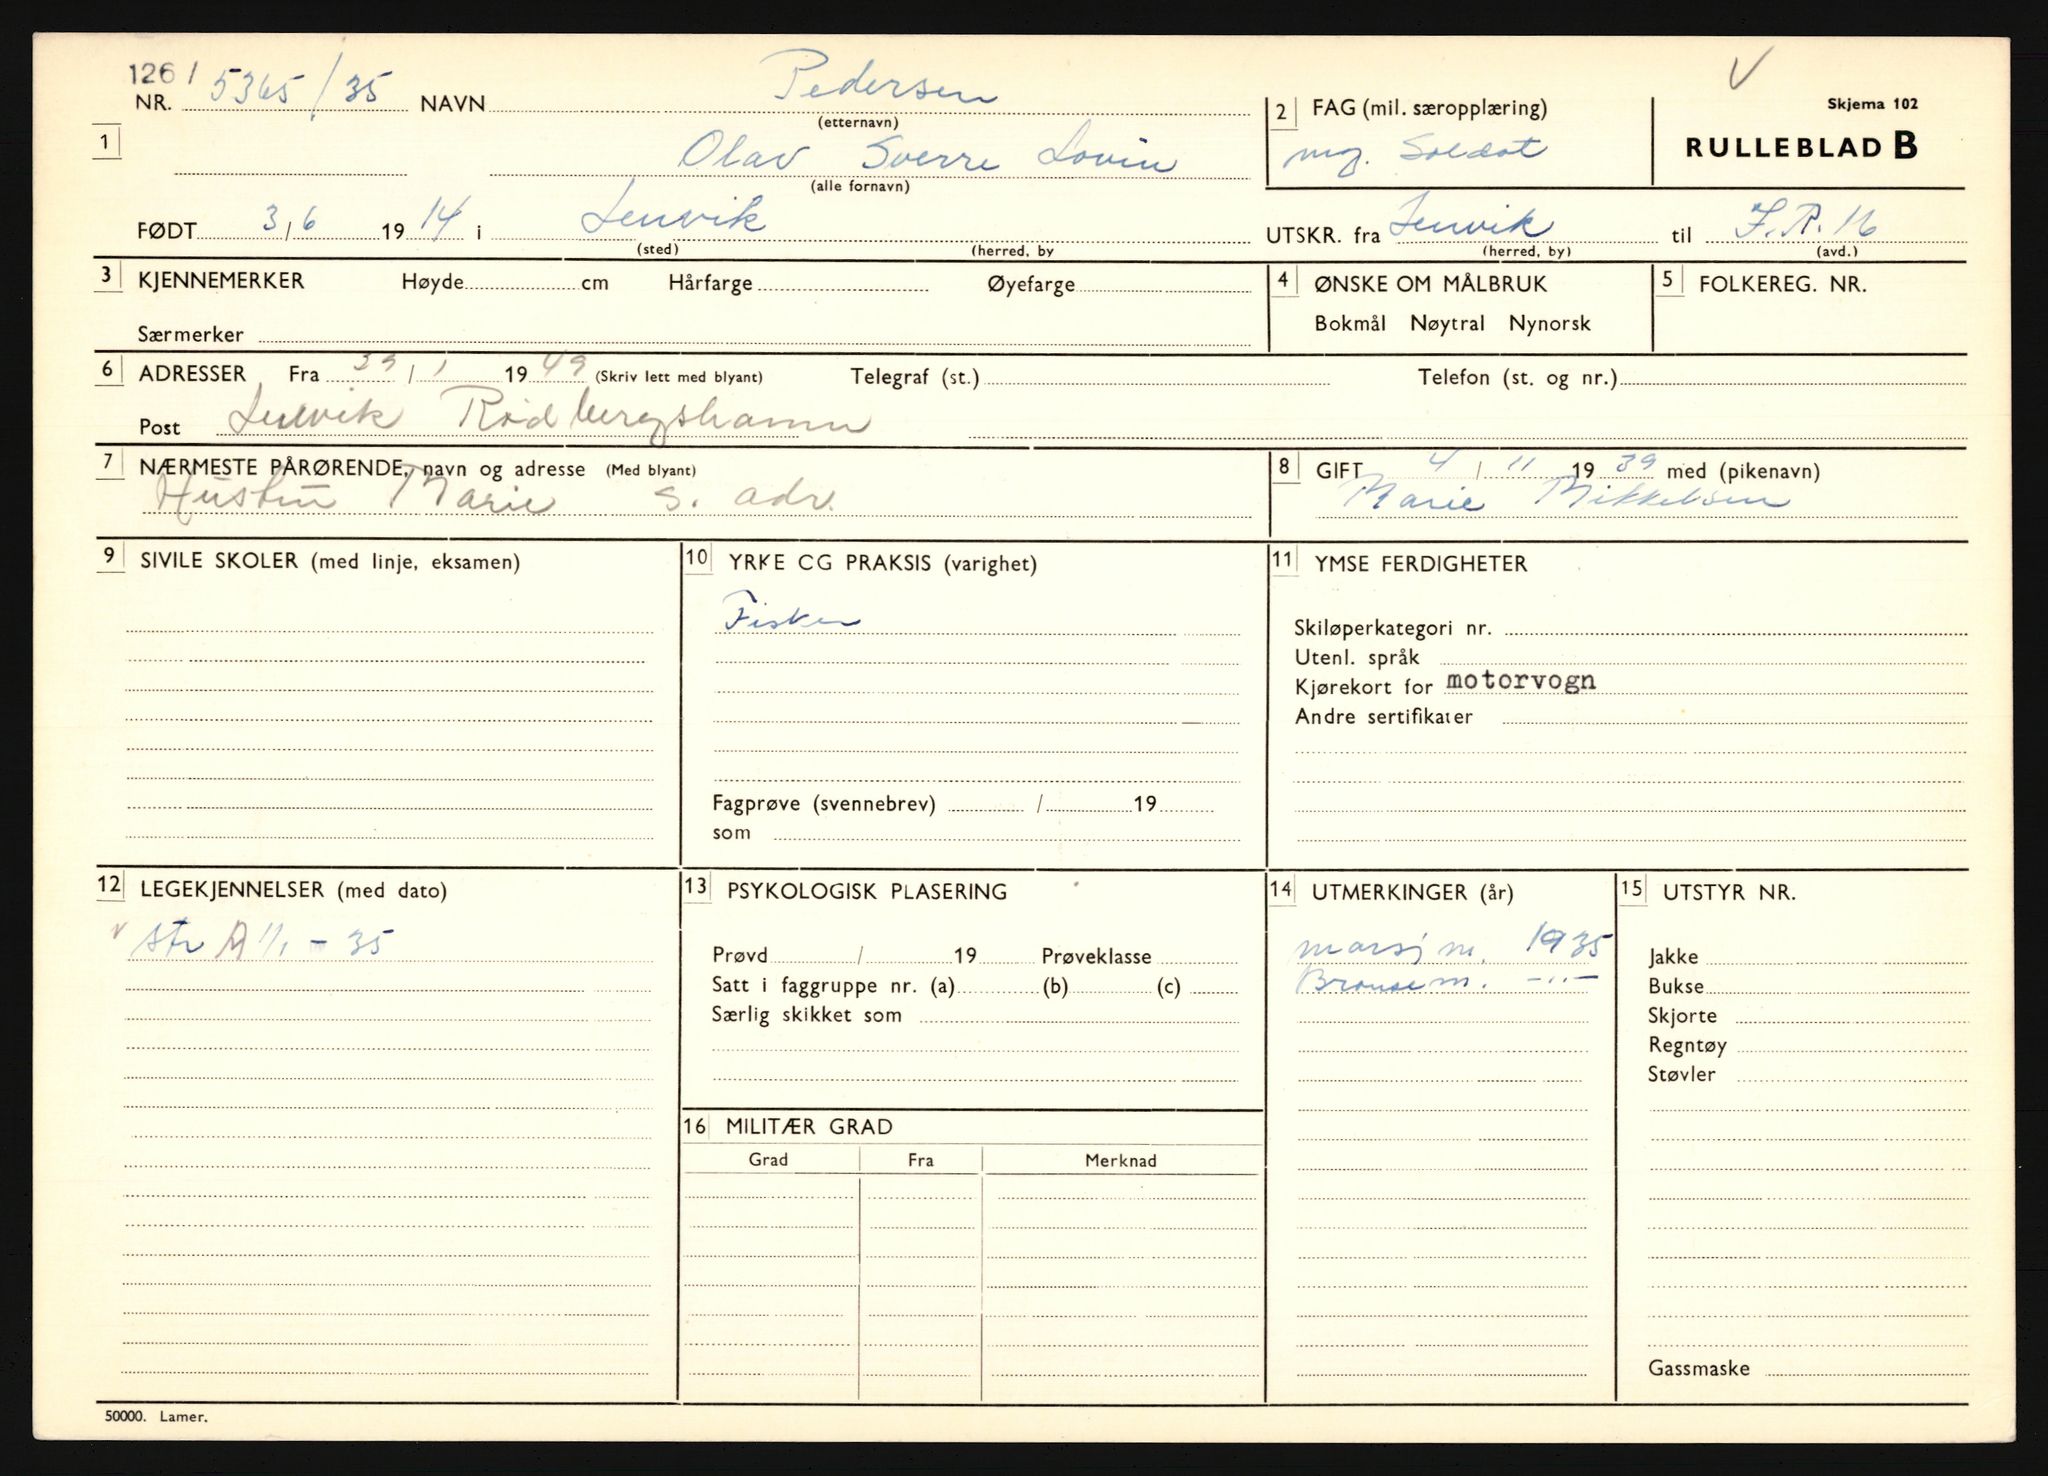 126 / 5365/35 NR. NAVN Pedersen
(etternavn)
2 FAG (mil. særopplæring)
Skjema 102
RULLEBLAD B
1
Olav Sverre Lovin
(alle fornavn)
mg. Soldat
FØDT 3/6 1914 i Lenvik
(sted) (herred, by
UTSKR. fra Lenvik til I.R. 16
(herred, by) (avd.)
3 KJENNEMERKER Høyde cm Hårfarge Øyefarge
Særmerker
4 ØNSKE OM MÅLBRUK
Bokmål Nøytral Nynorsk
5 FOLKEREG. NR.
6 ADRESSER Fra 29/1 1949 (Skriv lett med blyant) Telegraf (st.) Telefon (st. og nr.)
Post Lenvik Rødbergshamn
7 NÆRMESTE PÅRØRENDE, navn og adresse (Med blyant)
Hustru Marie s. adr.
8 GIFT 4/11 1939 med (pikenavn)
Marie Mikkelsen
9 SIVILE SKOLER (med linje, eksamen)
10 YRKE CG PRAKSIS (varighet)
Fisker
Fagprøve (svennebrev) / 19
som
11 YMSE FERDIGHETER
Skiløperkategori nr.
Utenl. språk
Kjørekort for motorvogn
Andre sertifikater
12 LEGEKJENNELSER (med dato)
v str A 1/1 - 35
13 PSYKOLOGISK PLASERING
Prøvd / 19 Prøveklasse
Satt i faggruppe nr. (a) (b) (c)
Særlig skikket som
14 UTMERKINGER (år)
marsj m. 1935
Bronse m. -"-
15 UTSTYR NR.
Jakke
Bukse
Skjorte
Regntøy
Støvler
Gassmaske
16 MILITÆR GRAD
Grad Fra Merknad
50000. Lamer.